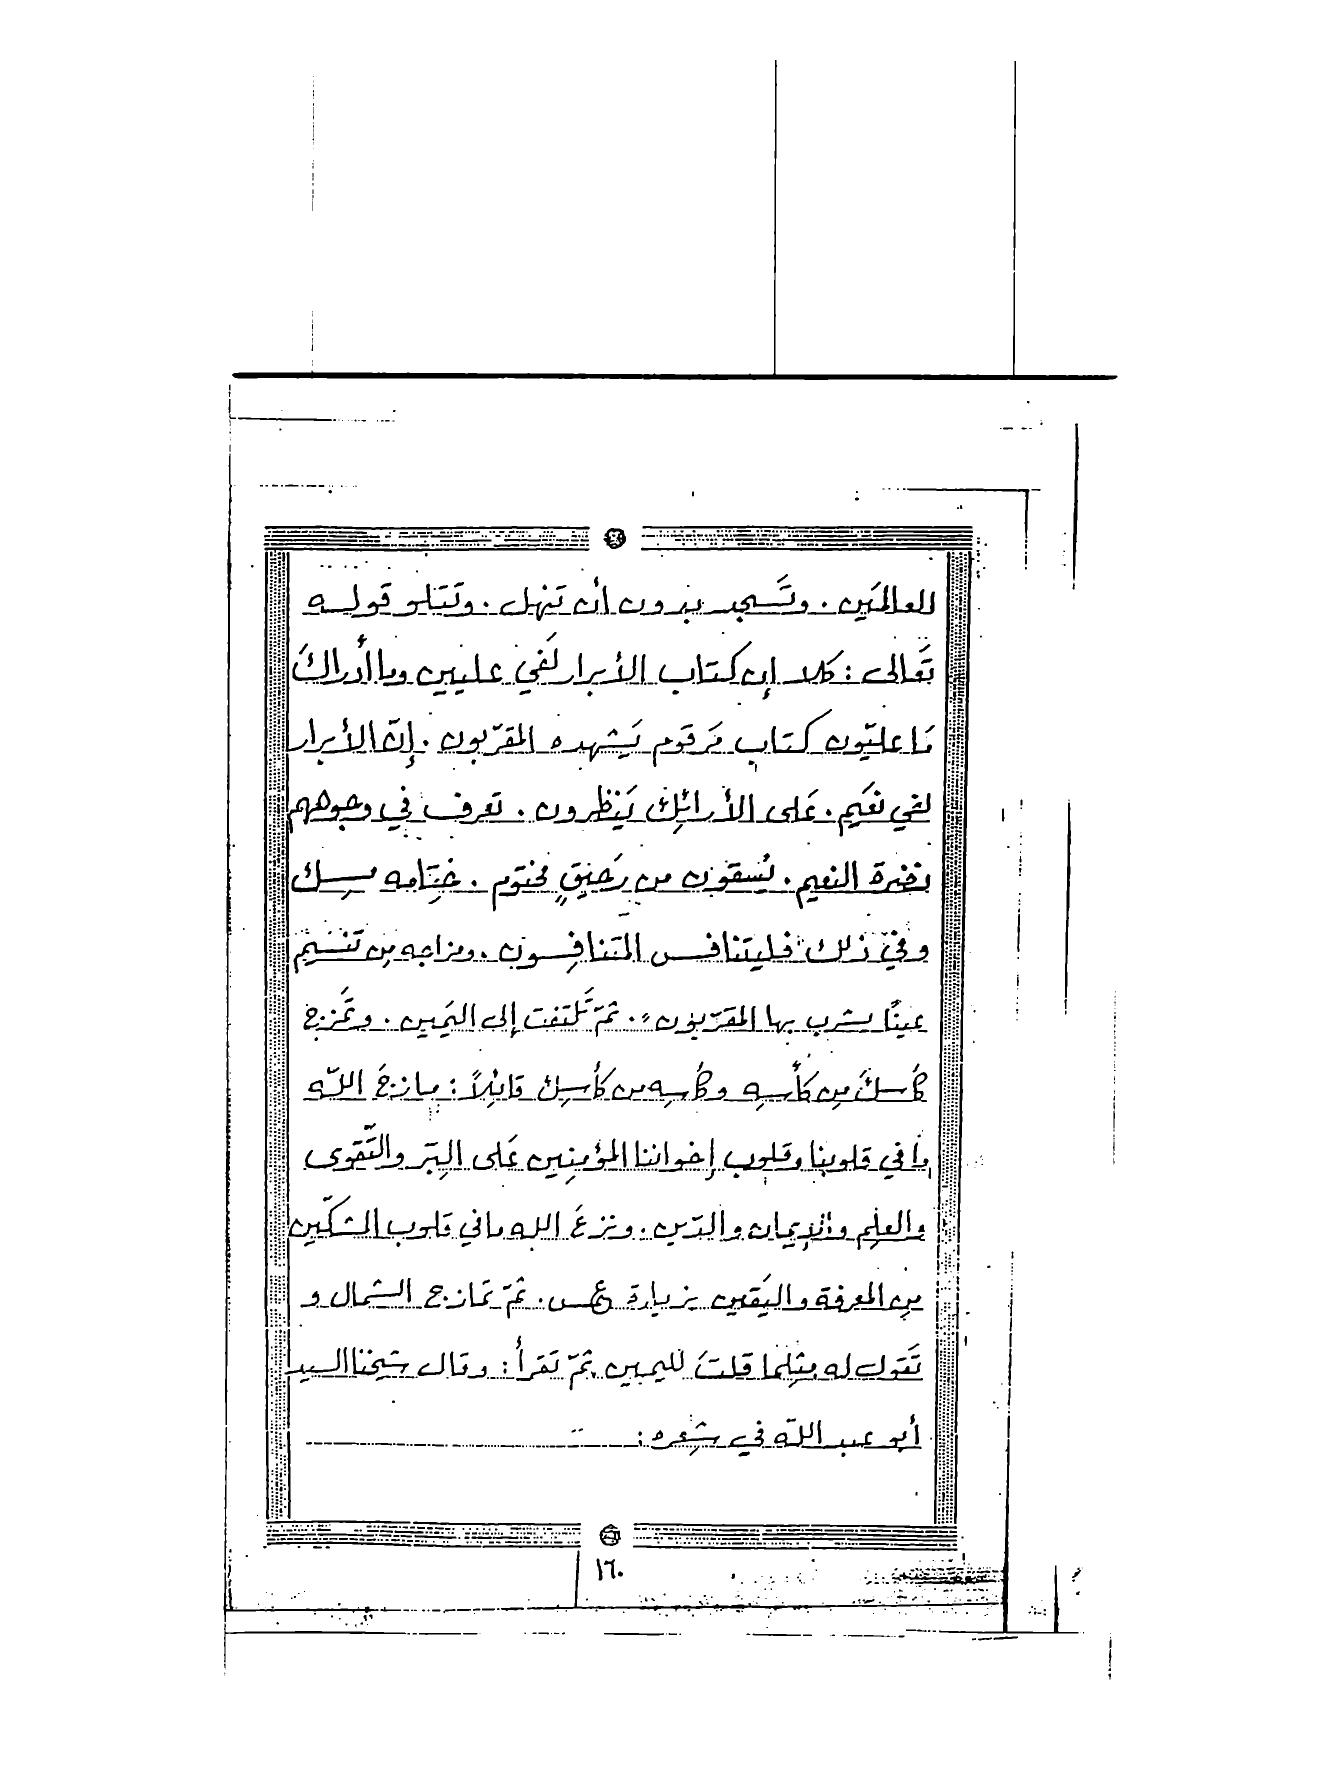 للعالمَين . وتَسجد بدون أن تنهل . وتَتَلو قوله
تَعالى : كلا إن كتاب الأبرار لَفي عليين وما أدراكَ
مَا عليّون كتاب مَرقوم يَشهده المقرّبون . إنّ الأبرار
لفي نعَيم . عَلى الأرائِك يَنظرون . تعرف في وجوههم
نضرة النعيم . يُسقون من رَحيقٍ مختوم . خِتَامه مِسك
وفي ذلك فليتنافس المتنافِسون . ومزاجه مِن تَسنيم
عينًا يشرب بها المقرّبون . ثمّ تَلتفت إلى اليَمين . وتَمزج
كأسكَ مِن كَأسِهِ وكأسِه من كأسِك قائِلاً : مازجَ اللّه
مَا في قلوبنا وقلوب إخواننا المؤمِنين عَلى البِرّ والتَّقوى
والعلِم والإيمان والدّين . ونزعَ الله ما في قلوب الشكّين
مِن المعرفة واليَقين بزيادة ع س . ثمّ تمازج الشمال و
تَقول له مِثلما قلتَ لليمين ثمّ تقرأ : وقال شيخنا السيد
أبو عبد اللّه في شِعره :
١٦٠